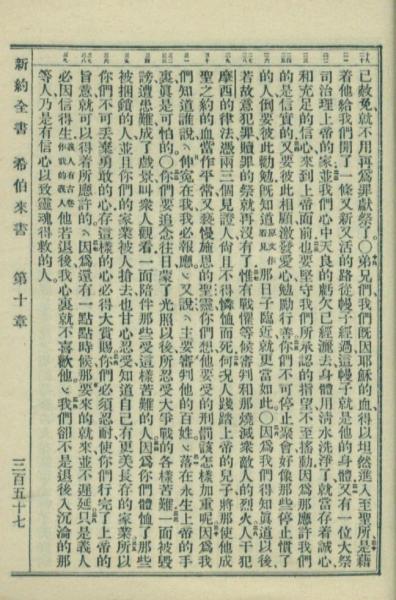 已赦免就不用再爲罪獻祭了〇弟兄們我們既因耶穌的血得以坦然進入至聖所是藉
着他給我們開了一條又新又活的路從幔子經過這幔子就是他的身體又有一位大祭
司治理上帝的家並我們心中天良的虧欠已經灑去身體用淸水洗淨了就當存着誠心
和充足的信心來到上帝面前也要堅守我們所承認的指望不至搖動因爲那應許我們
的是信實的又要彼此相顧激發愛心勉勵行善你們不可停止聚會好像那些停止慣了
的人倒要彼此勸勉旣知道原文作看見那日子臨近就更當如此〇因爲我們得知眞道以後
若故意犯罪贖罪的祭就再沒有了惟有戰懼等候審判和那燒滅衆敵人的烈火人干犯
摩西的律法憑兩三個見證人尙且不得憐恤而死何況人踐踏上帝的兒子將那使他成
聖之約的血當作平常又褻慢施恩的聖靈你們想他要受的刑罰該怎樣加重呢因爲我
們知道誰說伸寃在我我必報應又說主要審判他的百姓落在永生上帝的手
裏眞是可怕的〇你們要追念往日蒙了光照以後所忍受大爭戰的各樣苦難一面被毀
謗遭患難成了戲景叫衆人觀看一面陪伴那些受這樣苦難的人因爲你們體恤了那些
被捆鎖的人並且你們的家業被人搶去也甘心忍受知道自己有更美長存的家業所以
你們不可丟棄勇敢的心存這樣的心必得大賞賜你們必須忍耐使你們行完了上帝的
旨意就可以得着所應許的因爲還有一點點時候那要來的就來並不遲延只是義人
必因信得生義人有古卷作我的義人他若退後我心裏就不喜歡他我們卻不是退後入沉淪的那
等人乃是有信心以致靈魂得救的人
新約全書 希伯來書 第十章 三百五十七